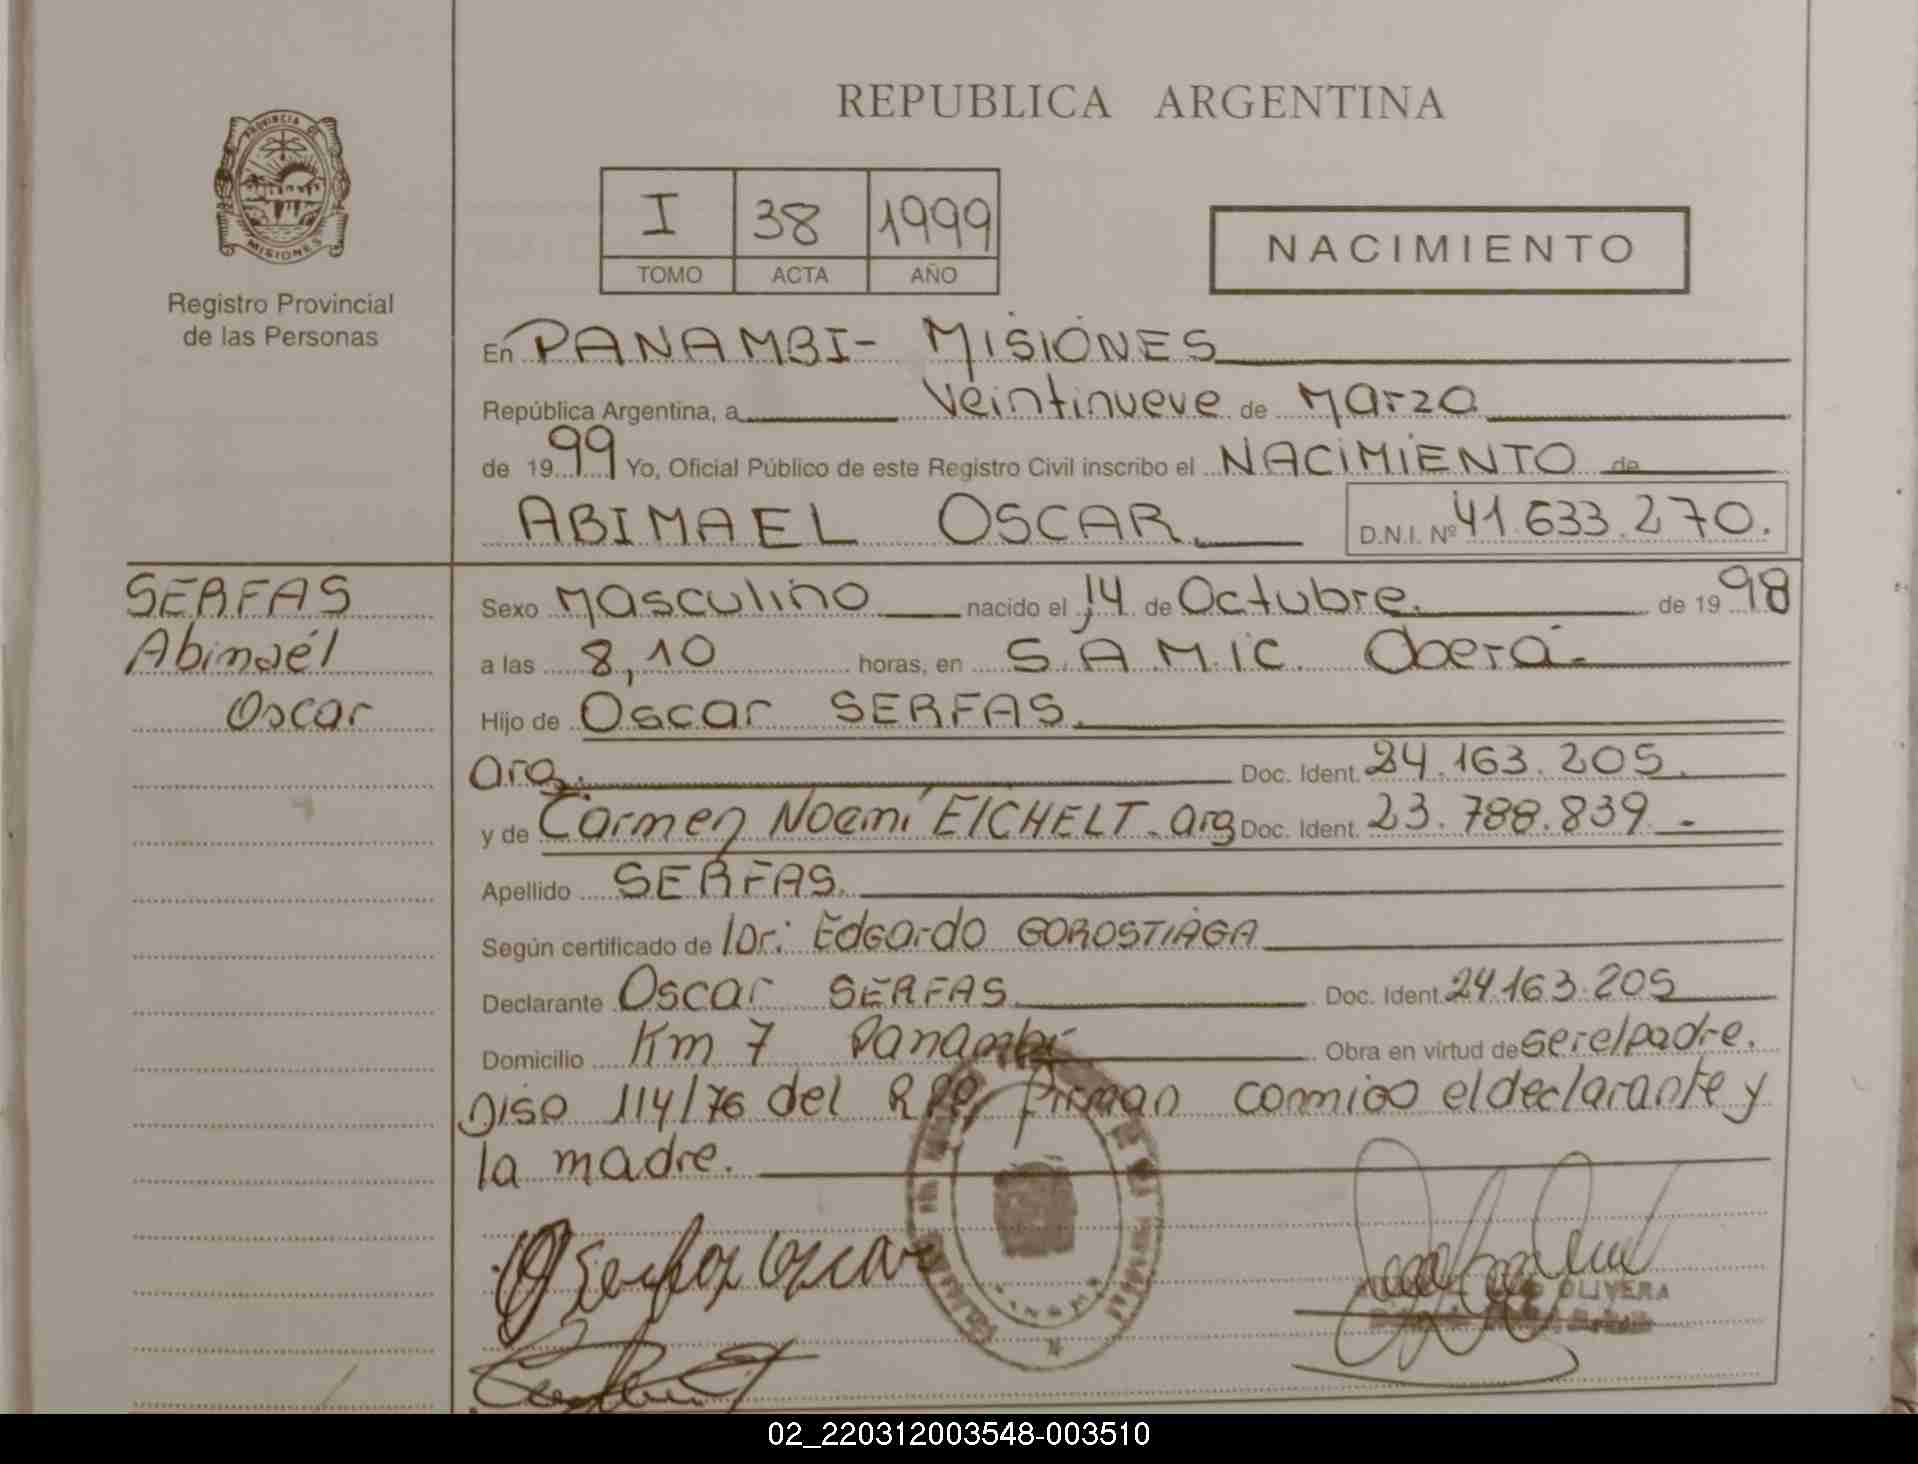 REPUBLICA ARGENTINA
PROVINCIA DE
MISIONES
Registro Provincial
de las Personas
I 38 1999
TOMO ACTA AÑO
NACIMIENTO
En PANAMBI- MISIONES
República Argentina, a Veintinueve de Marzo
de 1999 Yo, Oficial Público de este Registro Civil inscribo el NACIMIENTO de
ABIMAEL OSCAR. D.N.I. Nº 41.633.270.
SERFAS
Abimaél
Oscar
Sexo Masculino nacido el 14 de Octubre. de 1998
a las 8,10 horas, en S.A.M.I.C. Oberá-
Hijo de Oscar SERFAS.
arg. Doc. Ident. 24.163.205.
y de Carmen Noemí EICHELT. arg Doc. Ident. 23.788.839.-
Apellido SERFAS.
Según certificado de Dr: Edgardo GOROSTIAGA
Declarante Oscar SERFAS. Doc. Ident. 24.163.205
Domicilio Km 7 Panambí Obra en virtud de ser el padre.
Disp 114/76 del RPP. Firman conmigo el declarante y
la madre.
Serfas Oscar
OLIVERA
02_220312003548-003510